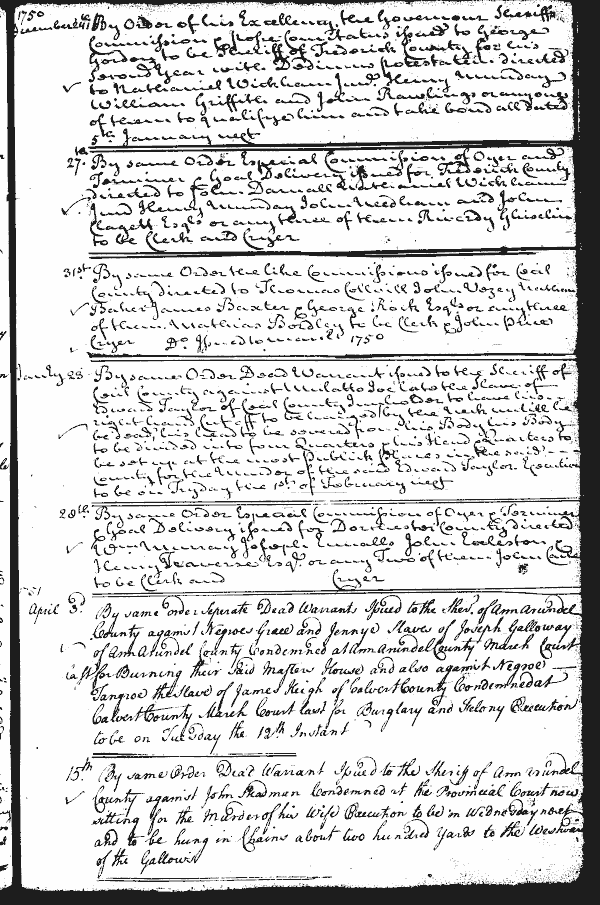 1750
December 24th By Order of his Excellency the Governour Sheriffs
Commission & posse Comitatus issued to George
Gordon to be Sheriff of Frederick County for his
Second Year with Dedimus protestatem directed
to Nathaniel Wickham Junr. Henry Munday
William Griffith and John Rawlings or any one
of them to qualifye him and take bond all dated
5th January next
27th. By same Order Especial Commission of Oyer and
Terminer & Goal Delivery issued for Frederick County
directed to John Darnall Nathaniel Wickham
Junr Henry Munday John Needham and John
Clagett Esqrs or any three of them Riverdy Ghiselin
to be Clerk and Cryer
31st. By same Order the like Commissions issued for Cecil
County directed to Thomas Colvill John Vezey Nathan
Baker James Baxter & George Rock Esqrs or any three
of them. Mathias Bordley to be Clerk & John Pine
Cryer Do. Issued to 1750
Janry 28 By same Order Dead Warrant issued to the Sheriff of
Cecil County against Mulatto Joe late the Slave of
Edward Taylor of Cecil County Innholder to have his
right hand Cut off to be hanged by the Neck untill he
be dead, his head to be severed from his Body his Body
to be divided into four Quarters & his Head & Quarters to
be set up at the most Publick Places in the said
County for the Murder of the said Edward Taylor. Execution
to be on Fryday the 1st of February next
28th. By same Order Especial Commission of Oyer & Terminer
& Goal Delivery issued for Dorchester County directed
Wm Murray Joseph Ennalls John Eccleston &
Henry Traverse Esqrs. or any Two of them John
to be Clerk and Cryer
1751
April 3d By same order Seperate Dead Warrants Issued to the Sher. of Ann Arundel
County against Negroes Grace and Jennye Slaves of Joseph Galloway
of Ann Arundel County Condemned at Ann Arundel County March Court
last for Burning their Said Masters House and also against Negroe
Tangroe the Slave of James Heigh of Calvert County Condemned at
Calvert County March Court last for Burglary and Felony Execution
to be on Tuesday the 12th Instant
15th By same Order Dead Warrant Issued to the Sheriff of Ann Arundel
County against John Steadman Condemned at the Provincial Court now
sitting for the Murder of his Wife Execution to be in Wednesday next
and to be hung in Chains about two hundred Yards to the Westward
of the Gallows